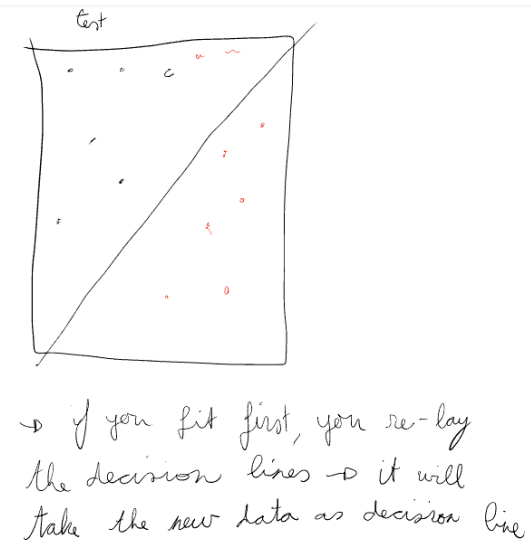 test
→ if you fit first, you re-lay
the decision lines → it will
take the new data as decision line